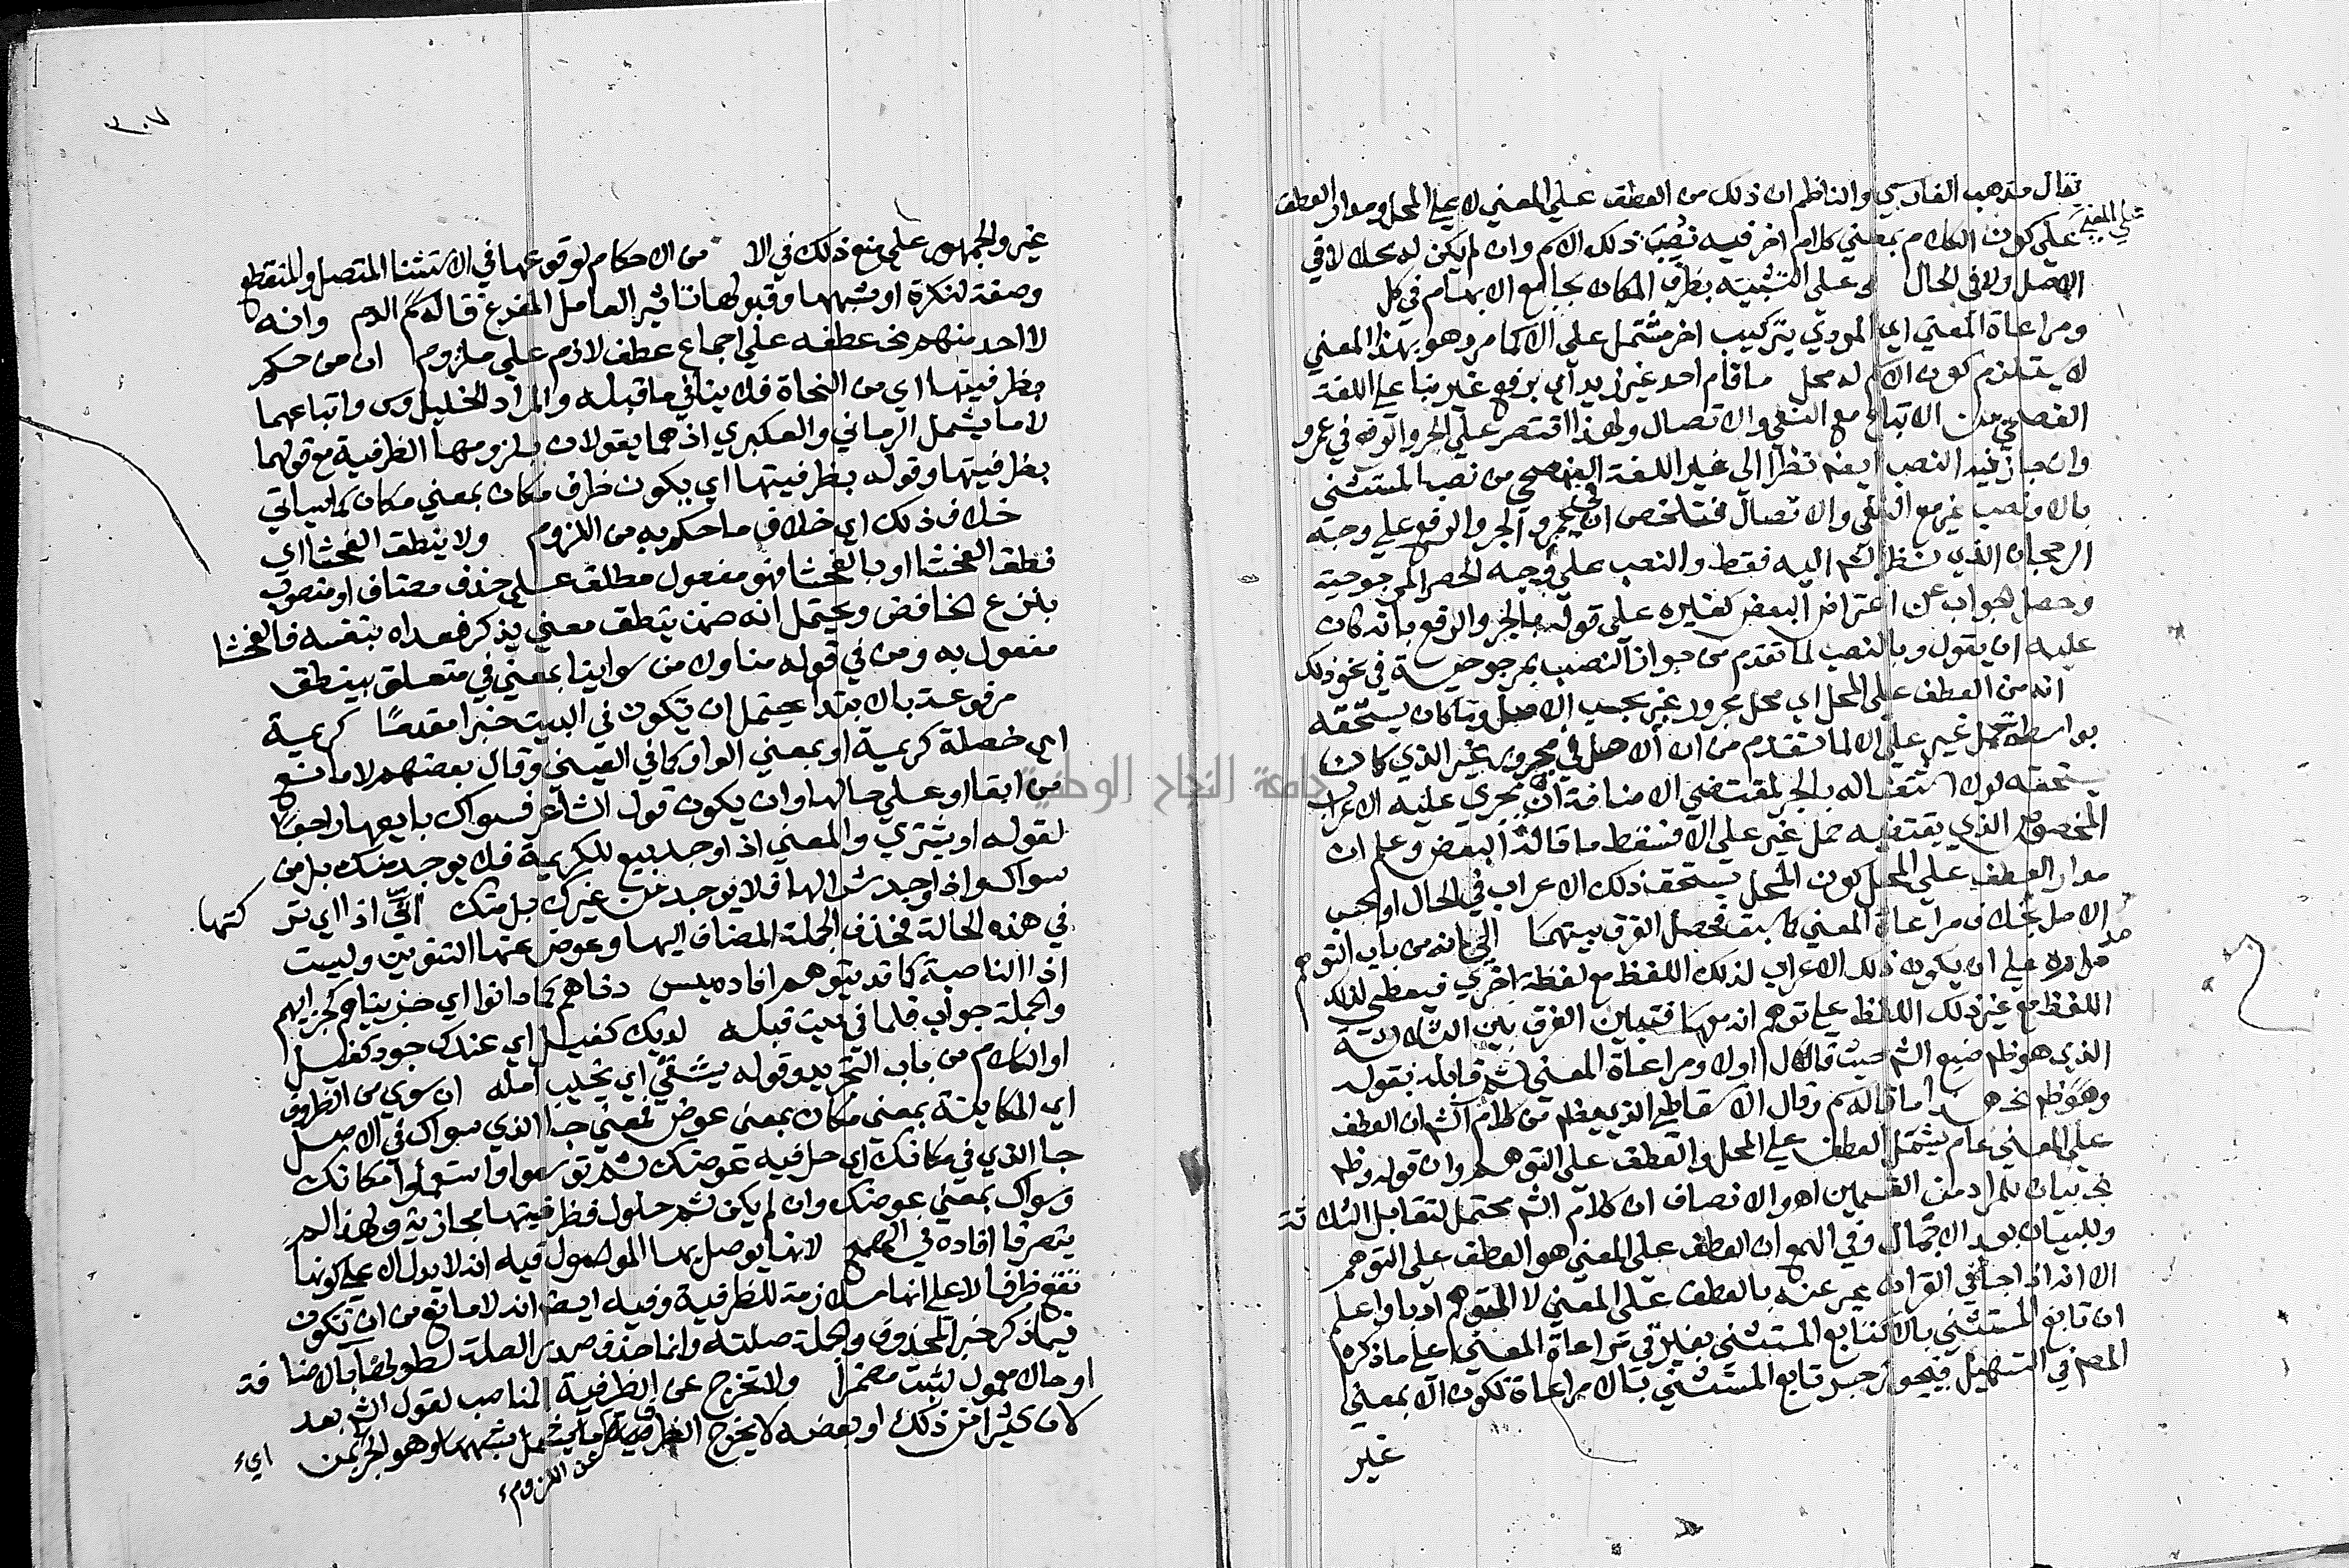 يقال مذهب الفارسي والناظم ان ذلك من العطف علي المعني لا علي المحل ومدار العطف
علي المعني
علي كون الكلام بمعني كلام اخر فيه نصب ذلك الاسم وان لم يكن له محلا لا في
الاصل ولا في الحال علي التشبيه بظرف المكان بجامع الابهام في كل
ومراعاة المعني اي المودي بتركيب اخر مشتمل علي الا كما مر وهو بهذا المعني
لا يستلزم كون الاسم له محل ما قام احد غير زيد اي برفع غير بناء علي اللغة
الفصحي من الاتباع مع النفي والاتصال ولهذا اقتصر علي الجر والرفع في عمرو
وان جاز فيه النصب ايضا نظرا الي غير اللغة الفصحي من نصب المستثني
بالا ونصب غير مع النفي والاتصال فتلخص ان في عمرو الجر والرفع علي وجه
الرجحان الذي نظر الشم اليه فقط والنصب علي وجه المرجوحية
وحصل الجواب عن اعتراض البعض كغيره علي قوله بالجر والرفع بانه كان
عليه ان يقول وبالنصب لما تقدم من جواز النصب بمرجوحية في نحو ذلك
انه من العطف علي المحل اي محل مجرور غير بحسب الاصل وما كان يستحقه
بواسطة حمل غير علي الا لما تقدم من ان الاصل في مجرور غير الذي كان
يستحقه لولا اشتغاله بالجر لمقتضي الاضافة ان يجري عليه الاعراب
المخصوص الذي يقتضيه حمل غير علي الا فسقط ما قاله البعض وعلم ان
مدار العطف علي المحل كون المحل يستحق ذلك الاعراب في الحال او بحسب
الاصل بخلاف مراعاة المعني كما سبق فحصل الفرق بينهما الي انه من باب التوهم
مداره علي ان يكون ذلك الاعراب لذلك اللفظ مع لفظة اخري فيعطي لذلك
اللفظ مع غير ذلك اللفظ علي توهم انه معها فتباين الفرق بين الثلاثة
الذي هو ظم صنيع الشم حيث قال اولا ومراعاة المعني ثم قابله بقوله
وهو ظم نحو هذا ما قاله سم وقال الاسقاطي الذي يفهم من كلام الشم ان العطف
علي المعني عام يشمل العطف علي المحل والعطف علي التوهم وان قوله وظم
نحو بيان للمراد من القسمين اهـ والانصاف ان كلام الشم محتمل لتقابل الثلاثة
وللبيان بعد الاجمال وفي الهمع ان العطف علي المعني هو العطف علي التوهم
الا انه اذا جا في القران عبر عنه بالعطف علي المعني لا التوهم ادبا واعلم
ان تابع المستثني بالا كتابع المستثني بغير في مراعاة المعني علي ما ذكره
المصم في التسهيل فيجوز جر تابع المستثني بالا مراعاة لكون الا بمعني
غير
٣٠٧
غير والجمهور علي منع ذلك في الا من الاحكام لوقوعها في الاستثنا المتصل والمنقطع
وصفة لنكرة او شبهها وقبولها تاثير العامل المفرغ قاله سم الدم وانه
لا احد منهم نحو عطفه علي اجماع عطف لازم علي ملزوم ان من حكم
بظرفيتها اي من النحاة فلا ينافي ما قبله والمراد الخليل وس واتباعهما
لا ما يشمل الرماني والعكبري اذ هما يقولان بلزومها الظرفية مع قولهما
بظرفيتها وقوله بظرفيتها اي بكون ظرف مكان بمعني مكان كما سياتي
خلاف ذلك اي خلاف ما حكم به من اللزوم ولا ينطق الفحشا اي
نطق الفحشا او بالفحشا فهو مفعول مطلق علي حذف مضاف او منصوب
بنزع الخافض ويحتمل انه ضمن ينطق معني يذكر فعداه بنفسه فالفحشا
مفعول به ومن في قوله منا ولا من سواينا بمعني في متعلق بينطق
مرفوعة بالابتدا يحتمل ان تكون في البيت خبرا مقدما كريمة
اي خصلة كريمة او بمعني الواو كما في العيني وقال بعضهم لا مانع
من ابقا او علي حالها وان يكون قول الشاعر فسواك بايعها راجعا
لقوله او يشتري والمعني اذا وجد بيع للكريمة فلا يوجد منك بل من
سواك واذا وجد شرا لها فلا يوجد من غيرك بل منك اتي اذا اي تركتها
في هذه الحالة فحذف الجملة المضاف اليها وعوض عنها التنوين وليست
اذا الناصبة كما قد يتوهم افاده يس دناهم كما دانوا اي جزيناهم كجزائهم
والجملة جواب فلما في بيت قبله لديك كفيل اي عندك جود كفيل
او الكلام من باب التجريد وقوله يشقي اي يخيب امله ان سوي من الظروف
اي المكاينة بمعني مكان بمعني عوض فمعني جا الذي سواك في الاصل
جا الذي في مكانك اي حل فيه عوضك ثم توسعوا واستعملوا مكانك
وسواك بمعني عوضك وان لم يكن ثم حلول فظرفيتها مجازية ولهذا لم
يتصرفا افاده في الهمع لانها يوصل بها الموصول فيه انه لا يدل الا علي كونها
تقع ظرفا لا علي انها ملازمة للظرفية وفيه ايضا انه لا مانع من ان تكون
فيما ذكر خبرا لمحذوف والجملة صلته وانما حذف صدر الصلة لطولها بالاضافة
او حالا معمول لثبت مضمرا ولا تخرج عن الظرفية المناسب لقول الشم بعد
لان كثيرا من ذلك او بعضه لا يخرج الظرف عن اللزوم الي ما يشمل شبهها وهو الجر بمن اي